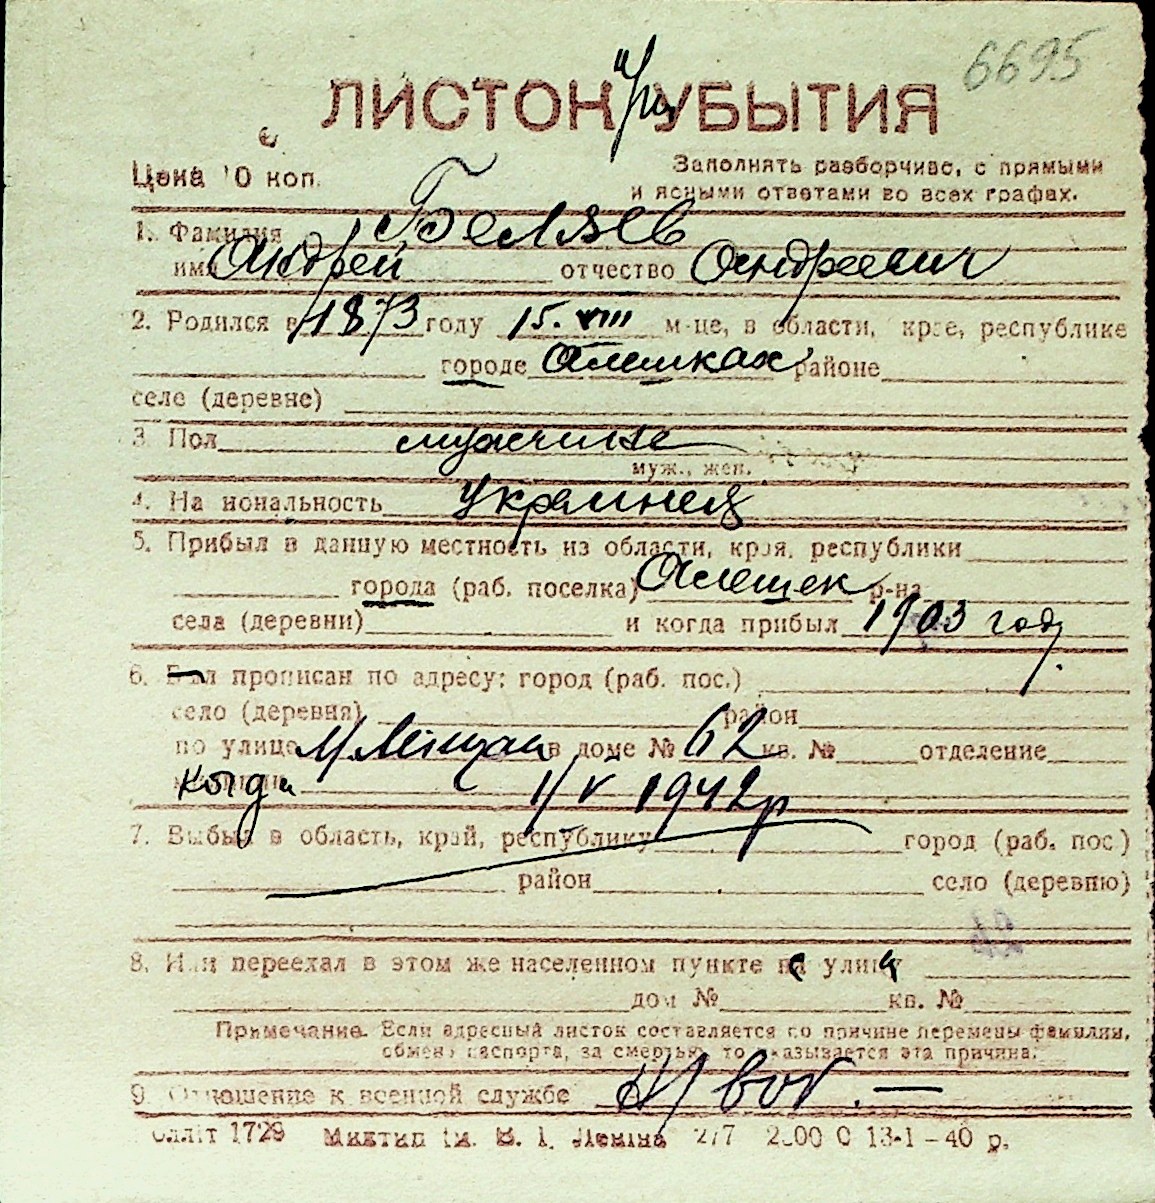 6695
ЛИСТОК УБЫТИЯ
Цена 10 коп.
Заполнять разборчиво, с прямыми
и ясными ответами во всех графах.
1. Фамилия Беляев
имя Андрей отчество Андреевич
2. Родился в 1873 году 15. VIII м-це, в области, крае, республике
городе Алешках районе
село (деревне)
3. Пол мужчина
муж., жен.
4. Национальность украинец
5. Прибыл в данную местность из области, края, республики
города (раб. поселка) Алешек р-на
села (деревни) и когда прибыл 1903 году
6. Был прописан по адресу: город (раб. пос.)
село (деревня) район
по улице в доме № 62 кв. № отделение
милиции когда 1/V 1942 р
7. Выбыл в область, край, республику город (раб. пос.)
район село (деревню)
42
8. Или переехал в этом же населенном пункте на улицу
дом № кв. №
Примечание. Если адресный листок составляется по причине перемены фамилии,
обмена паспорта, за смертью, то указывается эта причина.
9. Отношение к военной службе
Оллiт 1729 Миктип iм. В. I. Ленiна 277 2000 О 13-1-40 р.